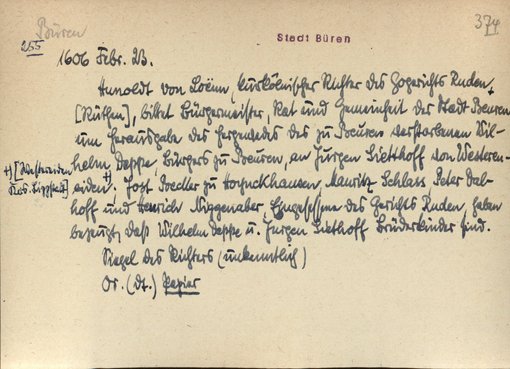 Büren
374
255
Stadt Büren
1606 Febr. 23.
Hunoldt von Loënn, kurkölnischer Richter des Gogerichts Ruden
[Rüthen], bittet Bürgermeister, Rat und Gemeinheit der Stadt Beuren
um Herausgabe des Hergewedes des zu Beuren verstorbenen Wil-
helm Deppe Bürgers zu Beuren, an Jurgen Lietthoff von Westeren-
+) [Westereiden
Krs. Lippstadt]
eiden +). Jost Bredler zu Hoynckhausen, Mauritz Schlass, Peter Dal-
hoff und Henrich Niggenaber, Eingesessene des Gerichts Ruden, haben
bezeugt, daß Wilhelm Deppe u. Jurgen Liethoff Brüderkinder sind.
Siegel des Richters (unkenntlich)
Or. (dt.) Papier